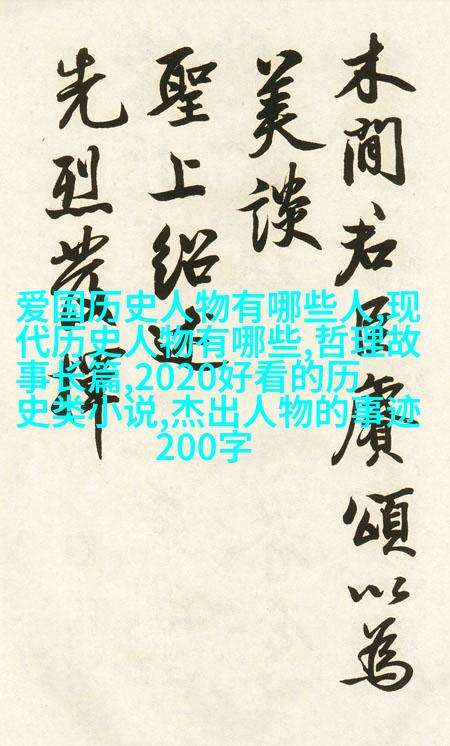 木間君臣賡頌以為
美談
聖上紹述
先烈
爱国历史人物有哪些人,现
代历史人物有哪些,哲理故
事长篇,2020好看的历
史类小说,杰出人物的事迹
200字